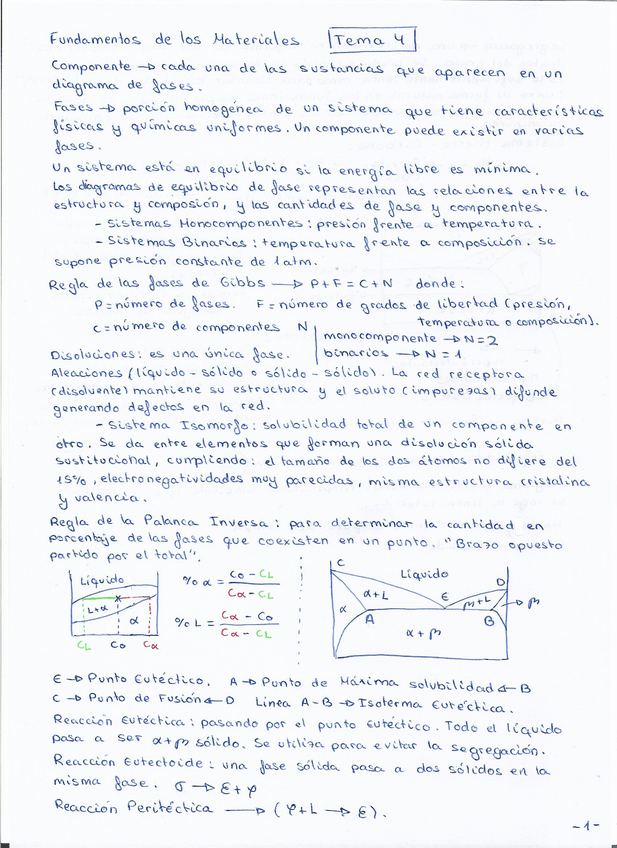 Fundamentos de los Materiales Tema 4
Componente → cada una de las sustancias que aparecen en un
diagrama de fases.
Fases → porción homogénea de un sistema que tiene características
físicas y químicas uniformes. Un componente puede existir en varias
fases.
Un sistema está en equilibrio si la energía libre es mínima.
Los diagramas de equilibrio de fase representan las relaciones entre la
estructura y composión, y las cantidades de fase y componentes.
- Sistemas Monocomponentes: presión frente a temperatura.
- Sistemas Binarios: temperatura frente a composición. Se
supone presión constante de 1 atm.
Regla de las fases de Gibbs → P + F = C + N donde:
P = número de fases. F = número de grados de libertad (presión,
temperatura o composición).
C = número de componentes N
monocomponente → N = 2
binarios → N = 1
Disoluciones: es una única fase.
Aleaciones (líquido - sólido o sólido - sólido). La red receptora
(disolvente) mantiene su estructura y el soluto (impurezas) difunde
generando defectos en la red.
- Sistema Isomorfo: solubilidad total de un componente en
otro. Se da entre elementos que forman una disolución sólida
sustitucional, cumpliendo: el tamaño de los dos átomos no difiere del
15%, electronegatividades muy parecidas, misma estructura cristalina
y valencia.
Regla de la Palanca Inversa: para determinar la cantidad en
porcentaje de las fases que coexisten en un punto. "Brazo opuesto
partido por el total".
Líquido
L+α
x
α
CL Co Cα
% α = Co - CL / Cα - CL
% L = Cα - Co / Cα - CL
C
Líquido
D
α+L
E
β+L
→ β
α
A
B
α + β
E → Punto Eutéctico. A → Punto de Máxima solubilidad ← B
C → Punto de Fusión ← D Línea A-B → Isoterma Eutéctica.
Reacción Eutéctica: pasando por el punto eutéctico. Todo el líquido
pasa a ser α+β sólido. Se utiliza para evitar la segregación.
Reacción Eutectoide: una fase sólida pasa a dos sólidos en la
misma fase. σ → ε + φ
Reacción Peritéctica → (φ + L → ε).
- 1 -